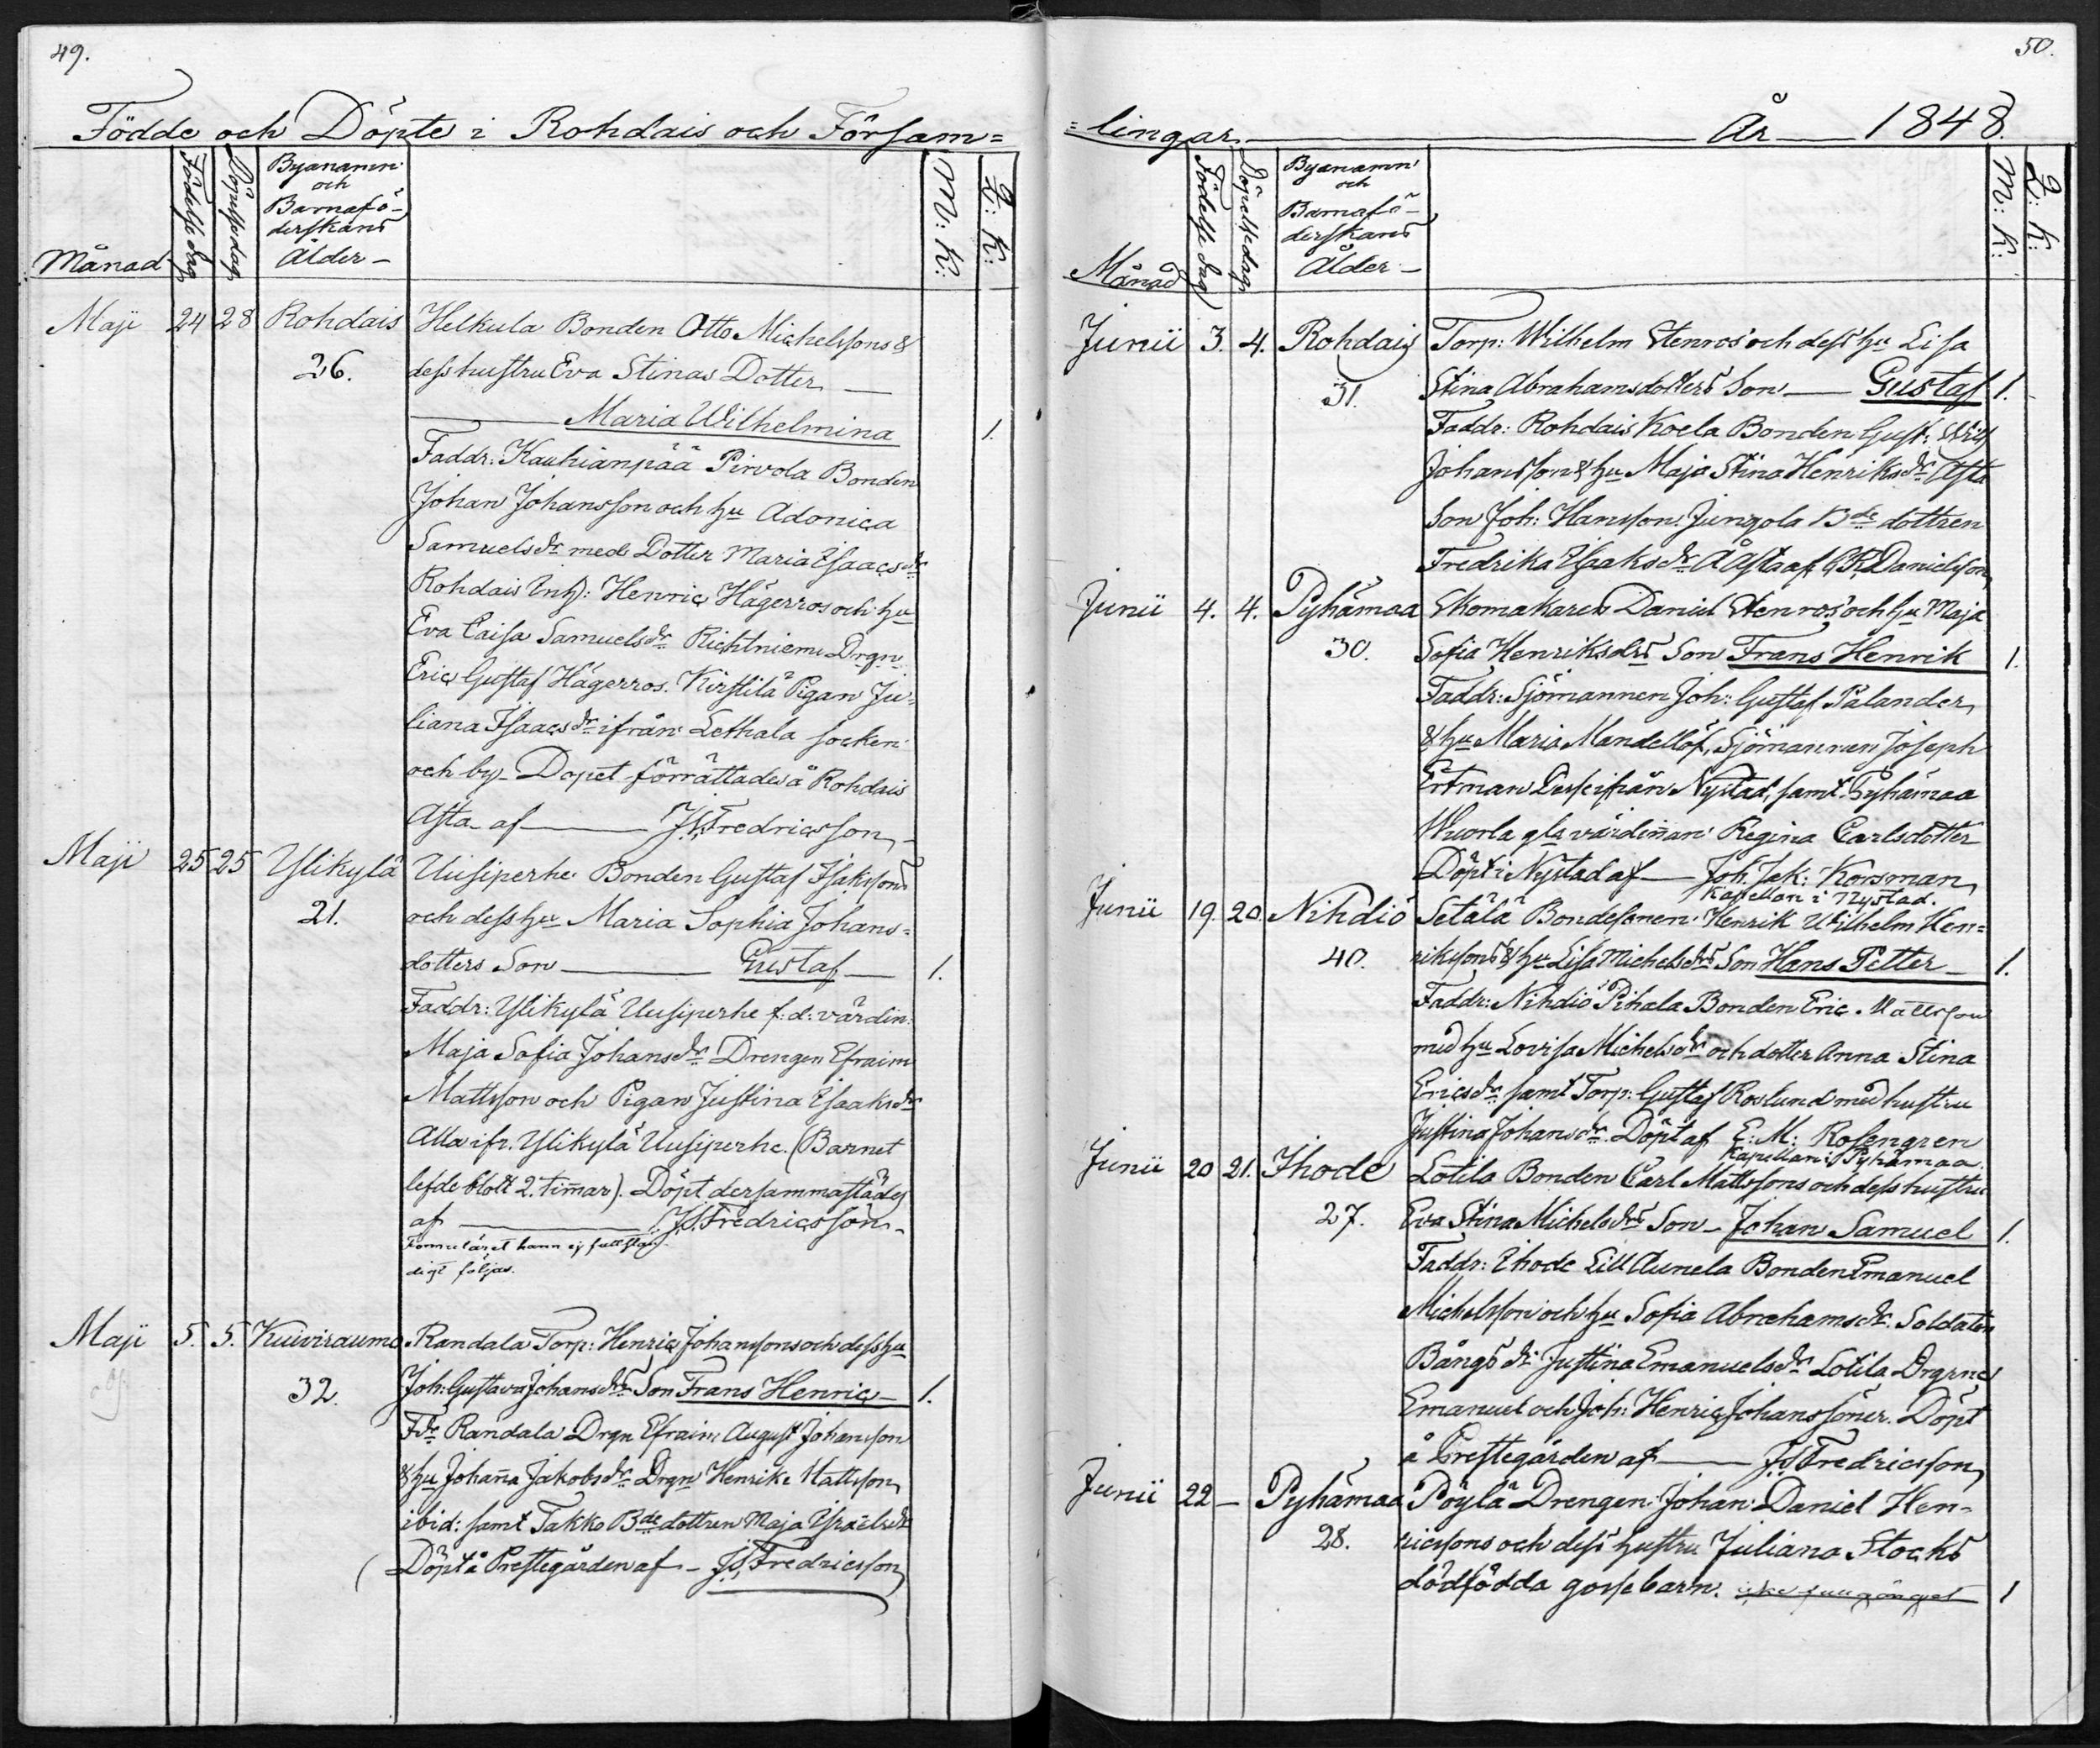 49.
Födde och Döpte i Rohdais och Församͦ=
Månad
Födelsedag
Döpelsedag
Byanamn
och
Barnafö-
derskans
Ålder-
M: K:
Q: K:
Maji 24 28 Rohdais Helkula Bonden Otto Michelssons &
26. dess hustru Eva Stinas Dotter
Maria Wilhelmina 1.
Faddr: Kaukianpää Pirvola Bonden
Johan Johansson och hu Adonica
Samuelsdr med Dotter Maria Isaacsdr
Rohdais Inh: Henric Hägerros och hu
Eva Caisa Samuelsdr Richtniemi Drgn
Eric Gustaf Hägerros. Kirstilä Pigan Ju-
liana Isaacsdr ifrån Lethala socken
och by. Dopet förrättades å Rohdais
Asta af J.S. Fredricsson
Maji 25 25 Ylikylä Uusiperhe Bonden Gustaf Isakssons
21. och dess hu Maria Sophia Johans=
dotters Son Gustaf 1.
Faddr: Ylikylä Uusiperhe f: d: värdin:
Maja Sofia Johansdr Drengen Efraim
Mattsson och Pigan Justina Isaaksdr
Alla ifr. Ylikylä Uusiperhe. (Barnet
lefde blott 2. timar). Döpt dersammastädes
af J.S. Fredricsson
Formuläret hann ej fullstän-
digt följas.
Maji 5. 5. Kuivirauma Randala Torp: Henric Johanssons och dess hu
32. Joh: Gustava Johansdrs Son Frans Henric 1.
Fdr Randala Drgn Efraim August Johansson
& hu Johana Jakobsdr Drgn Henrik Mattsson
ibid: samt Takko Bde dottren Maja Israelsdr
Döpt å Prestegården af J.S. Fredricsson
50.
=lingar År 1848.
Månad
Födelsedag
Döpelsedag
Byanamn
och
Barnafö-
derskans
Ålder-
M: K:
Q: K:
Junii 3. 4. Rohdais Torp: Wilhelm Stenros och dess hu Lisa
31. Stina Abrahamsdotters Son Gustaf 1.
Faddr: Rohdais Koela Bonden Gust: Wilh
Johansson & hu Maja Stina Henriksdr Asta
Son Joh: Hansson. Jungola Bde dottren
Fredrika Isaksdr Å Asta af C.R. Danielsson
Junii 4. 4. Pyhämaa Skomakaren Daniel Stenros och hu Maja
30. Sofia Henriksdrs Son Frans Henrik 1.
Faddr: Sjömannen Joh: Gustaf Palander
& hu Maria Mandellöf, Sjömannen Joseph
Ertman Desse ifrån Nystad, samt Pyhämaa
Wuorla gla värdinan Regina Carlsdotter
Döpt i Nystad af Joh. Jak: Korsman
Kapellan i Nystad.
Junii 19. 20. Nihdiö Setälä Bondesonen Henrik Wilhelm Hen=
40. rikssons & hu Lisa Michelsdrs Son Hans Petter 1.
Faddr: Nihdiö Pihala Bonden Eric Mattsson
med hu Lovisa Michelsdr och dotter Anna Stina
Ericsdr samt Torp: Gustaf Roslund med hustru
Justina Johansdr. Döpt af E: M: Rosengren
Kapellan i Pyhämaa.
Junii 20 21. Ihode Lotila Bonden Carl Mattssons och dess hustru
27. Eva Stina Michelsdrs Son Johan Samuel 1.
Faddr: Ihode Lill Aunela Bonden Emanuel
Michelsson och hu Sofia Abrahamsdr. Soldaten
Bångs dr Justina Emanuelsdr Lotila Drgrne
Emanuel och Joh: Henric Johanssöner. Döpt
å Prestegården af J.S. Fredricsson
Junii 22 - Pyhämaa Pöylä Drengen Johan Daniel Hen-
28. ricssons och dess hustru Juliana Stocks
dödfödda gossebarn. icke fullgånget 1